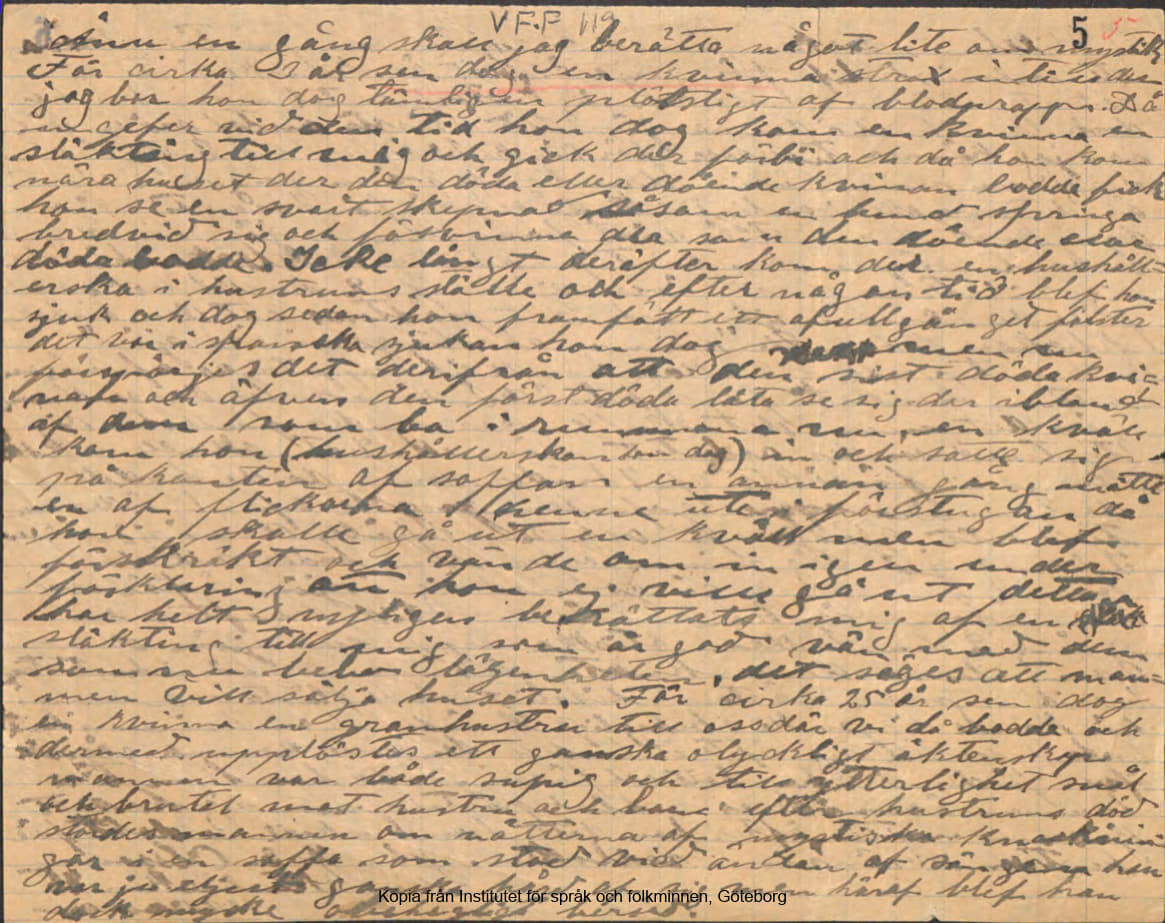 VFF 119
5 5
ännu en gång skall jag berätta något lite om mystik
För cirka 2 år sen dog en kvinna strax intill der
jag bor hon dog tämligen plötsligt af blodpropp. Då
ungefer vid den tid hon dog kom en kvinna en
släkting till mig och gick der förbi och då hon kom
nära huset der den döda eller döende kvinnan bodde fick
hon se en svart skepnad såsom en hund springa
bredvid sig och försvinna der som den döende eller
döda bodde. Icke långt derefter kom der en hushåll-
erska i hustruns ställe och efter någon tid blef hon
sjuk och dog sedan hon framfött ett ofullgånget foster
det var i spanska sjukan hon dog men nu
förspörjes det derifrån att den sist döda kvi-
nan och äfven den först döda låta se sig der ibland
af dem som bo i rummena nu, en kväll
kom hon (hushållerskan som dog) in och satte sig
på kanten af soffan en annan gång mötte
en af flickorna denne ute i förstugan då
hon skulle gå ut en kväll men blef
förskräkt och vände om in igen under
förklaring att hon ej ville gå ut detta
har helt nyligen berättats mig af en
släkting till mig som är god vän med dem
som nu bebo lägenheten, det säges att man-
nen vill sälja huset. För cirka 25 år sen dog
en kvinna en granhustru till oss där vi då bodde och
dermed upplöstes ett ganska olyckligt äktenskap
mannen var både supig och till ytterlighet snål
och brutal mot hustru och barn efter hustruns död
stördes mannen om nätterna af mystiska knacknin-
gar i en soffa som stod vid ändan af sängen han
var ju eljest ganska af sig men häraf blef han
dock mycke
Kopia från Institutet för språk och folkminnen, Göteborg